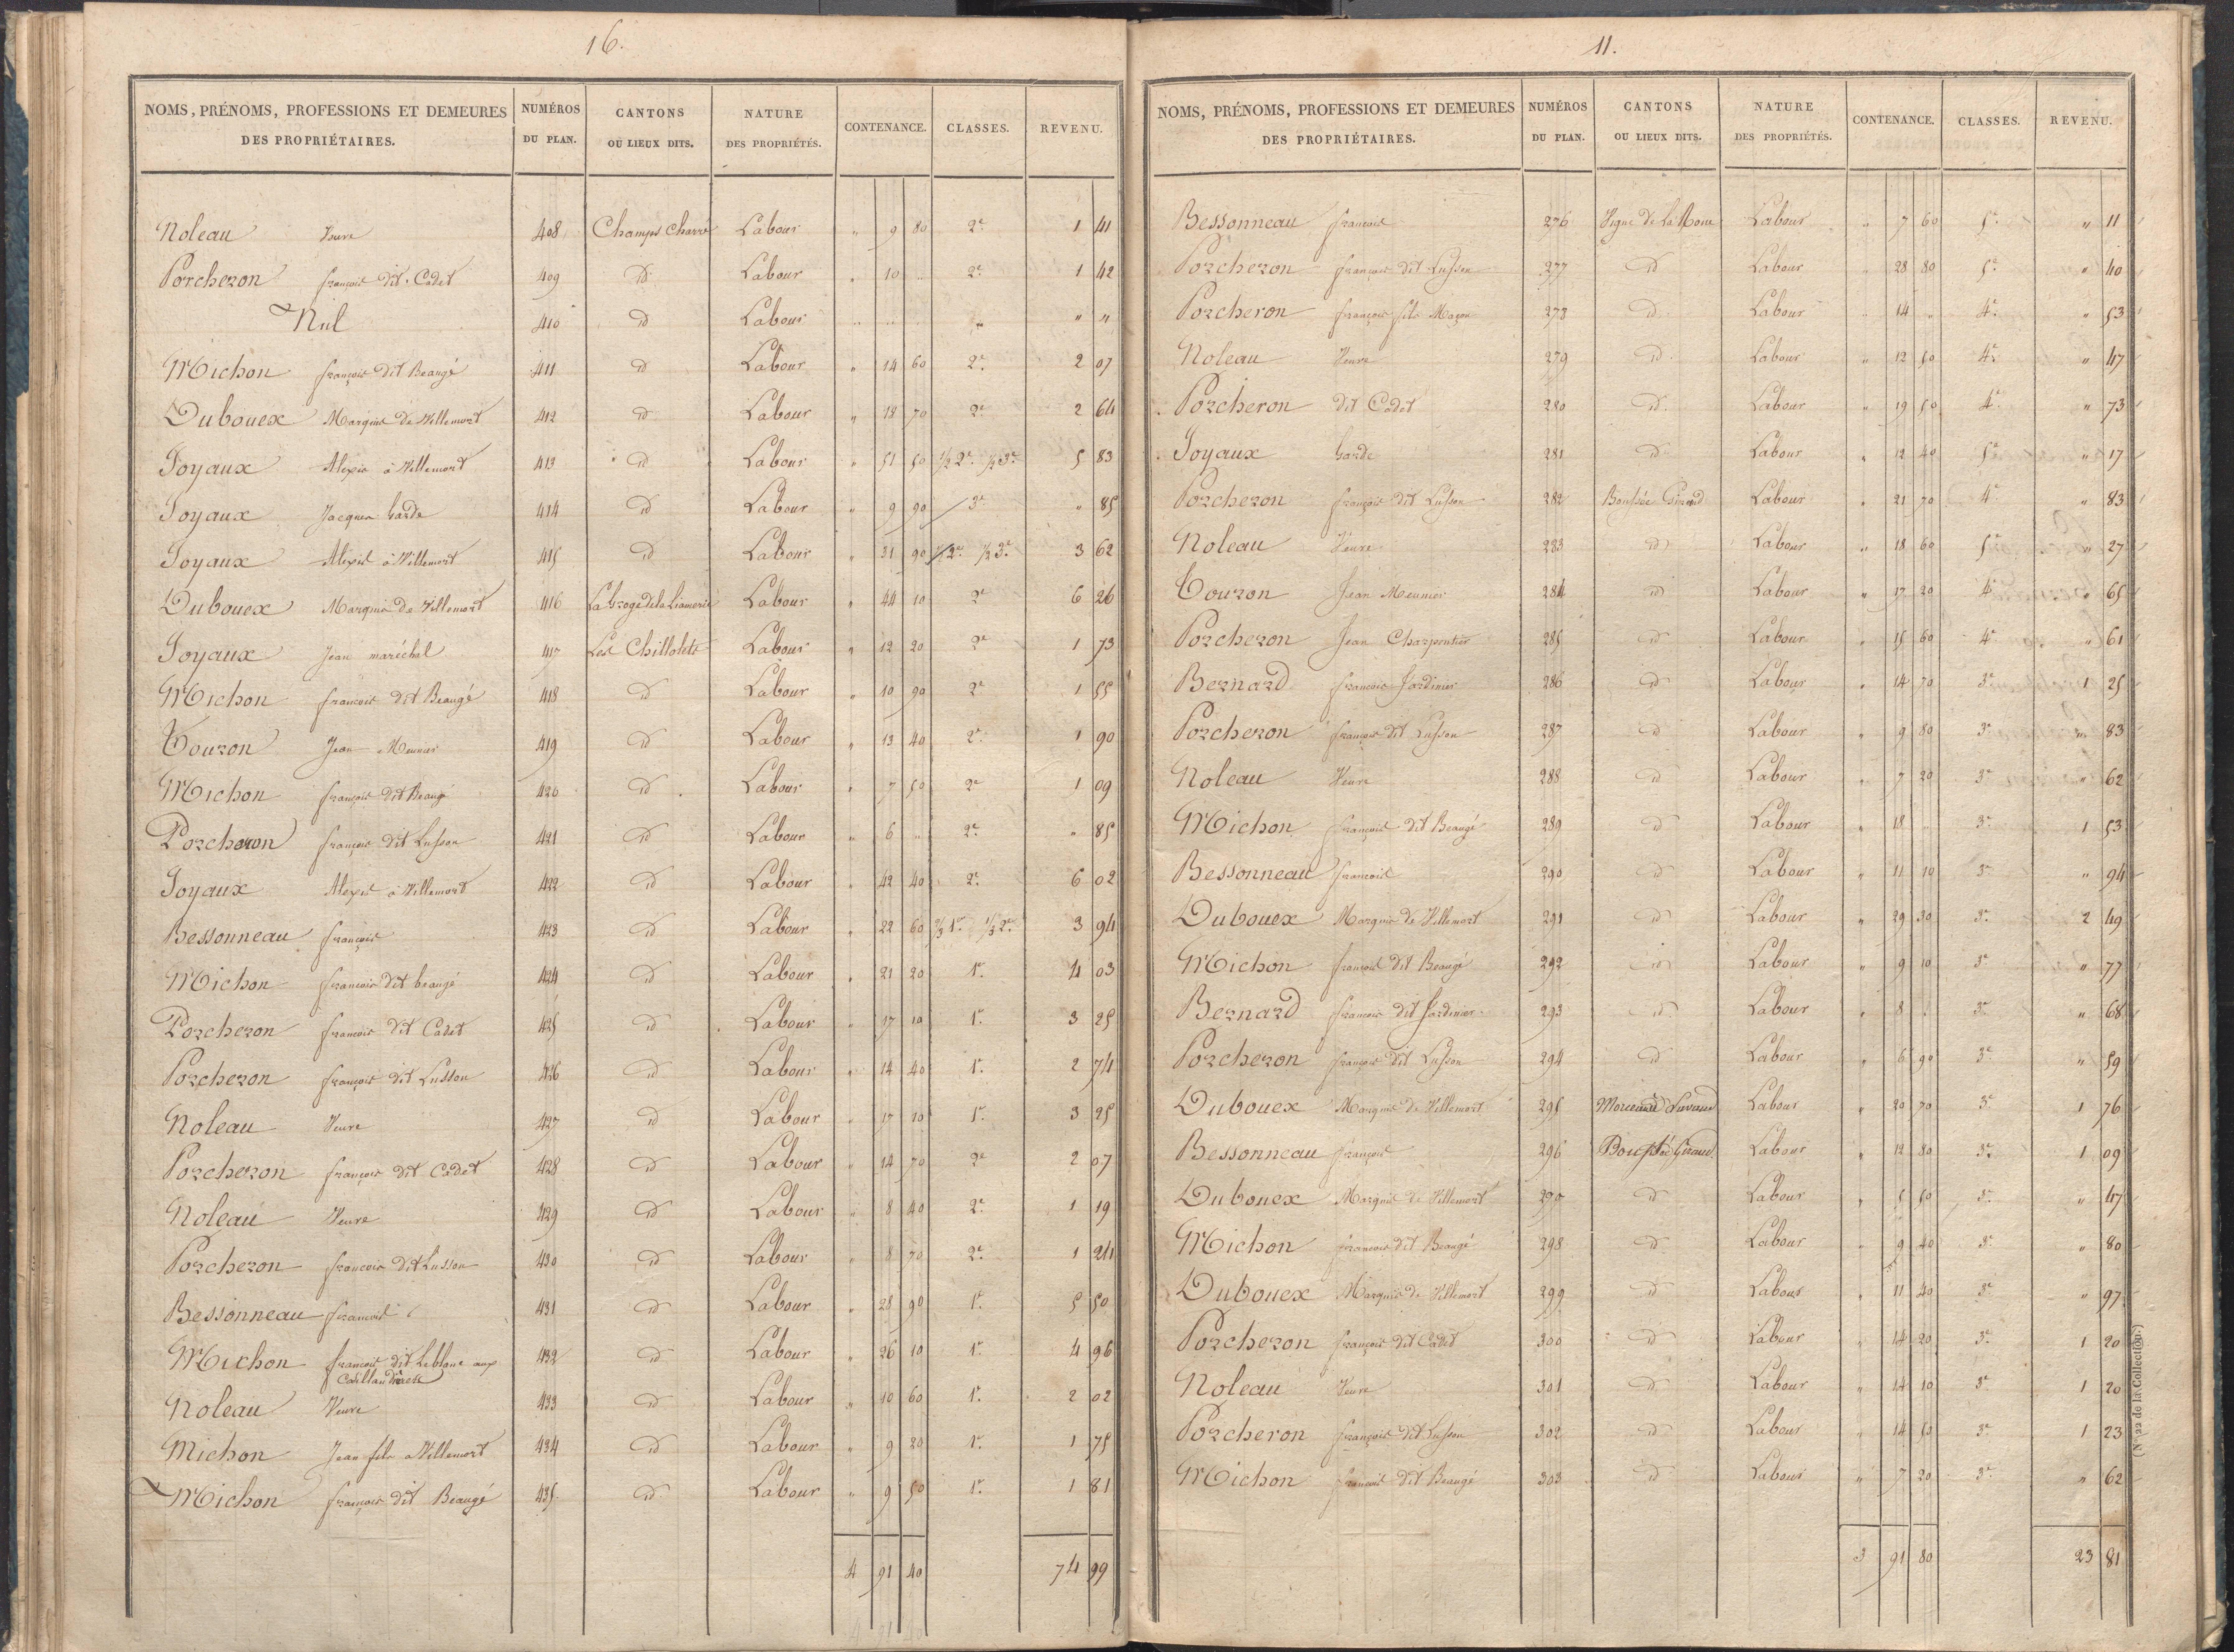 16.
NOMS, PRÉNOMS, PROFESSIONS ET DEMEURES DES PROPRIÉTAIRES. NUMÉROS DU PLAN. CANTONS OU LIEUX DITS. NATURE DES PROPRIÉTÉS. CONTENANCE. CLASSES. REVENU.
Noleau Veuve 408 Champs Charré Labour " 9 80 2e 1 41
Porcheron françois dit Cadet 409 id Labour " 10 .. 2e 1 42
Nul 410 id Labour " " " " "
Michon françois dit Beaugé 411 id Labour " 14 60 2e 2 07
Dubouex Marquis de Villemort 412 id Labour " 18 70 2e 2 64
Joyaux Alexis à Villemort 413 id Labour " 51 50 1/2 2e 1/2 3e 5 83
Joyaux Jacques Garde 414 id Labour " 9 90 3e " 85
Joyaux Alexis à Villemort 415 id Labour " 31 90 1/2 2e 1/2 3e 3 62
Dubouex Marquis de Villemort 416 Labour " 44 10 2e 6 26
Joyaux Jean maréchal 417 Les Chillolets Labour " 12 20 2e 1 73
Michon françois dit Beaugé 418 id Labour " 10 90 2e 1 55
Touron Jean Meunier 419 id Labour " 13 40 2e 1 90
Michon françois dit Beaugé 420 id Labour " 7 50 2e 1 09
Porcheron françois dit Lusson 421 id Labour " 6 .. 2e " 85
Joyaux Alexis à Villemort 422 id Labour " 42 40 2e 6 02
Bessonneau françois 423 id Labour " 22 60 2/3 1e 1/3 2e 3 94
Michon françois dit beaugé 424 id Labour " 21 20 1e 4 03
Porcheron françois dit Cadet 425 id Labour " 17 10 1e 3 25
Porcheron françois dit Lusson 426 id Labour " 14 40 1e 2 74
Noleau Veuve 427 id Labour " 17 10 1e 3 25
Porcheron françois dit Cadet 428 id Labour " 14 70 2e 2 07
Noleau Veuve 429 id Labour " 8 40 2e 1 19
Porcheron françois dit Lusson 430 id Labour " 8 70 2e 1 24
Bessonneau françois 431 id Labour " 28 90 1e 5 50
Michon françois dit Leblanc aux 432 id Labour " 26 10 1e 4 96
Noleau Veuve 433 id Labour " 10 60 1e 2 02
Michon Jean fils a Villemort 434 id Labour " 9 20 1e 1 75
Michon françois dit Beaugé 435 id Labour " 9 50 1e 1 81
4 91 40 74 99
11.
NOMS, PRÉNOMS, PROFESSIONS ET DEMEURES DES PROPRIÉTAIRES. NUMÉROS DU PLAN. CANTONS OU LIEUX DITS. NATURE DES PROPRIÉTÉS. CONTENANCE. CLASSES. REVENU.
Bessonneau françois 276 Vigne de la Labour " 7 60 5e " 11
Porcheron françois dit Lusson 277 id Labour " 28 80 5e " 40
Porcheron françois fils Maçon 278 id Labour " 14 " 4e " 53
Noleau Veuve 279 id Labour " 12 50 4e " 47
Porcheron dit Cadet 280 id Labour " 19 50 4e " 73
Joyaux Garde 281 id Labour " 12 40 5e " 17
Porcheron françois dit Lusson 282 Giraud Labour " 21 70 4e " 83
Noleau Veuve 283 id Labour " 18 60 5e " 27
Touron Jean Meunier 284 id Labour " 17 20 4e " 65
Porcheron Jean Charpentier 285 id Labour " 15 60 4e " 61
Bernard françois Jardinier 286 id Labour " 14 70 3e 1 25
Porcheron françois dit Lusson 287 id Labour " 9 80 3e " 83
Noleau Veuve 288 id Labour " 7 20 3e " 62
Michon françois dit Beaugé 289 id Labour " 18 .. 3e 1 53
Bessonneau françois 290 id Labour " 11 10 3e " 94
Dubouex Marquis de Villemort 291 id Labour " 29 30 3e 2 49
Michon françois dit Beaugé 292 id Labour " 9 10 3e " 77
Bernard françois dit Jardinier 293 id Labour " 8 .. 3e " 68
Porcheron françois dit Lusson 294 id Labour " 6 90 3e " 59
Dubouex Marquis de Villemort 295 Labour " 20 70 3e 1 76
Bessonneau françois 296 Giraud Labour " 12 80 3e 1 09
Dubouex Marquis de Villemort 297 id Labour " 5 50 3e " 47
Michon françois dit Beaugé 298 id Labour " 9 40 3e " 80
Dubouex Marquis de Villemort 299 id Labour " 11 40 3e " 97
Porcheron françois dit Cadet 300 id Labour " 14 20 3e 1 20
Noleau Veuve 301 id Labour " 14 10 3e 1 20
Porcheron françois dit Lusson 302 id Labour " 14 50 3e 1 23
Michon françois dit Beaugé 303 id Labour " 7 20 3e " 62
3 91 80 23 81
(No 22 de la Collection.)